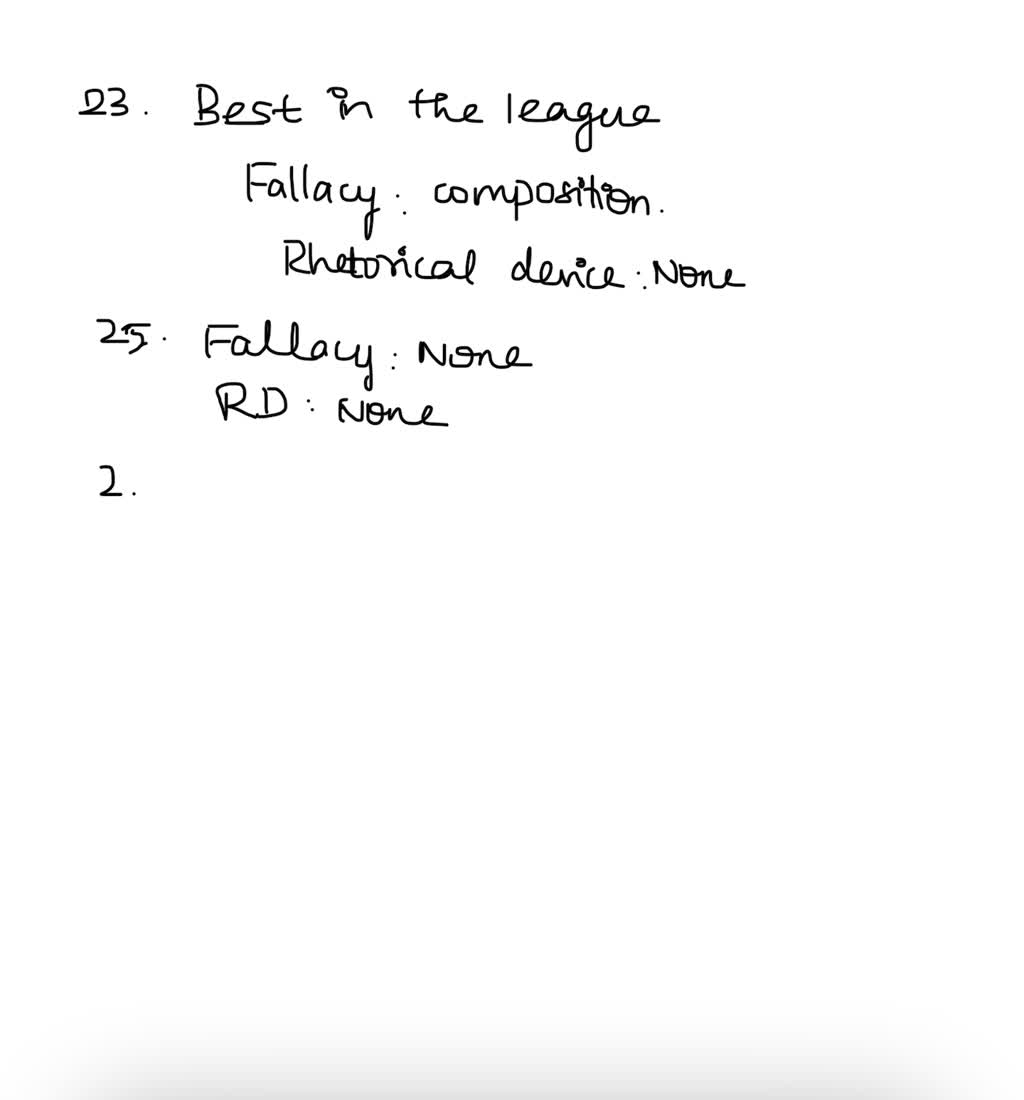 23. Best in the league
Fallacy: composition.
Rhetorical device: None
25. Fallacy: None
RD: None
2.